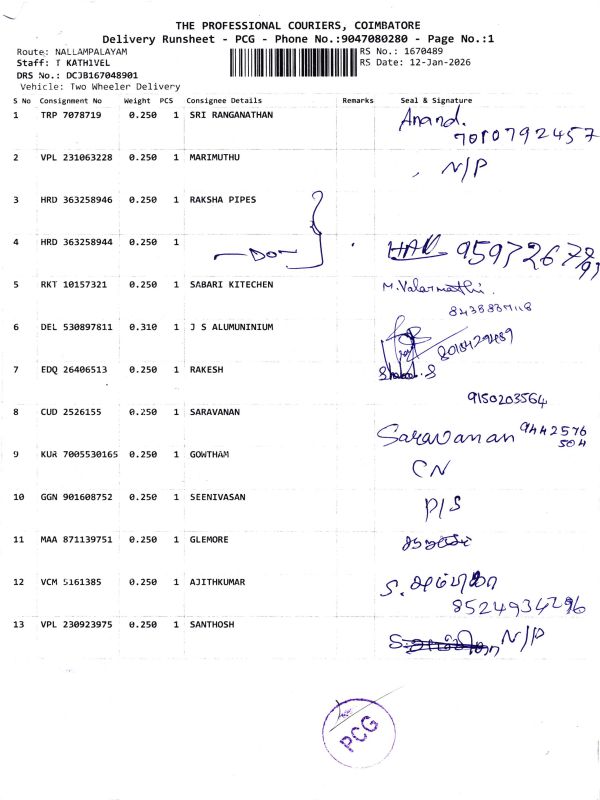 THE PROFESSIONAL COURIERS, COIMBATORE
Delivery Runsheet - PCG - Phone No.:9047080280 - Page No.:1
Route: NALLAMPALAYAM RS No.: 1670489
Staff: T KATHIVEL RS Date: 12-Jan-2026
DRS No.: DCJB167048901
Vehicle: Two Wheeler Delivery
S No Consignment No Weight PCS Consignee Details Remarks Seal & Signature
1 TRP 7078719 0.250 1 SRI RANGANATHAN Anand.
7010792457
2 VPL 231063228 0.250 1 MARIMUTHU N/P
3 HRD 363258946 0.250 1 RAKSHA PIPES
4 HRD 363258944 0.250 1 —DO—
5 RKT 10157321 0.250 1 SABARI KITECHEN M.Valarmathi.
6 DEL 530897811 0.310 1 J S ALUMUNINIUM
7 EDQ 26406513 0.250 1 RAKESH
9150203564
8 CUD 2526155 0.250 1 SARAVANAN Saravanan 9442576
504
9 KUR 7005530165 0.250 1 GOWTHAM CN
10 GGN 901608752 0.250 1 SEENIVASAN P/S
11 MAA 871139751 0.250 1 GLEMORE
12 VCM 5161385 0.250 1 AJITHKUMAR
8524934296
13 VPL 230923975 0.250 1 SANTHOSH N/P
PCG